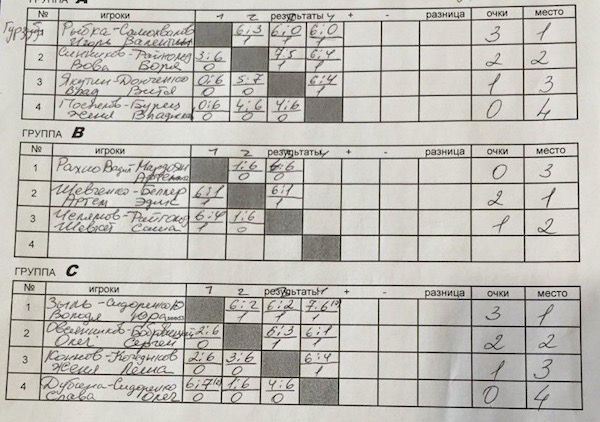 ГРУППА А
№ игроки 1 2 результаты + - разница очки место
Рыбка-Самохвалов 6:3 6:0 6:0 3 1
Игорь Валентин 1 1 1
2 Райхонд 3:6 7:5 6:4 2 2
Вова Боря 0 1 1
3 Якутин-Донченко 0:6 5:7 6:4 1 3
Влад Витя 0 0 1
4 0:6 4:6 4:6 0 4
Женя Владимир 0 0 0
ГРУППА В
№ игроки 1 2 результаты + - разница очки место
1 1:6 0 3
0 0
2 Шевченко-Беллер 6:1 6:1 2 1
Артем Эдик 1 1
3 Челямов-Райхонд 6:4 1:6 1 2
Шевкет Саша 1 0
4
ГРУППА С
№ игроки 1 2 результаты + - разница очки место
1 Зыль-Сидоренко 6:2 6:2 7:6 3 1
Володя Юра 1 1 1
2 Овсянников 2:6 6:3 6:1 2 2
Олег Сергей 0 1 1
3 2:6 3:6 6:4 1 3
Женя Лёша 0 0 1
4 Сидоренко 6:7 1:6 4:6 0 4
Слава Олег 0 0 0